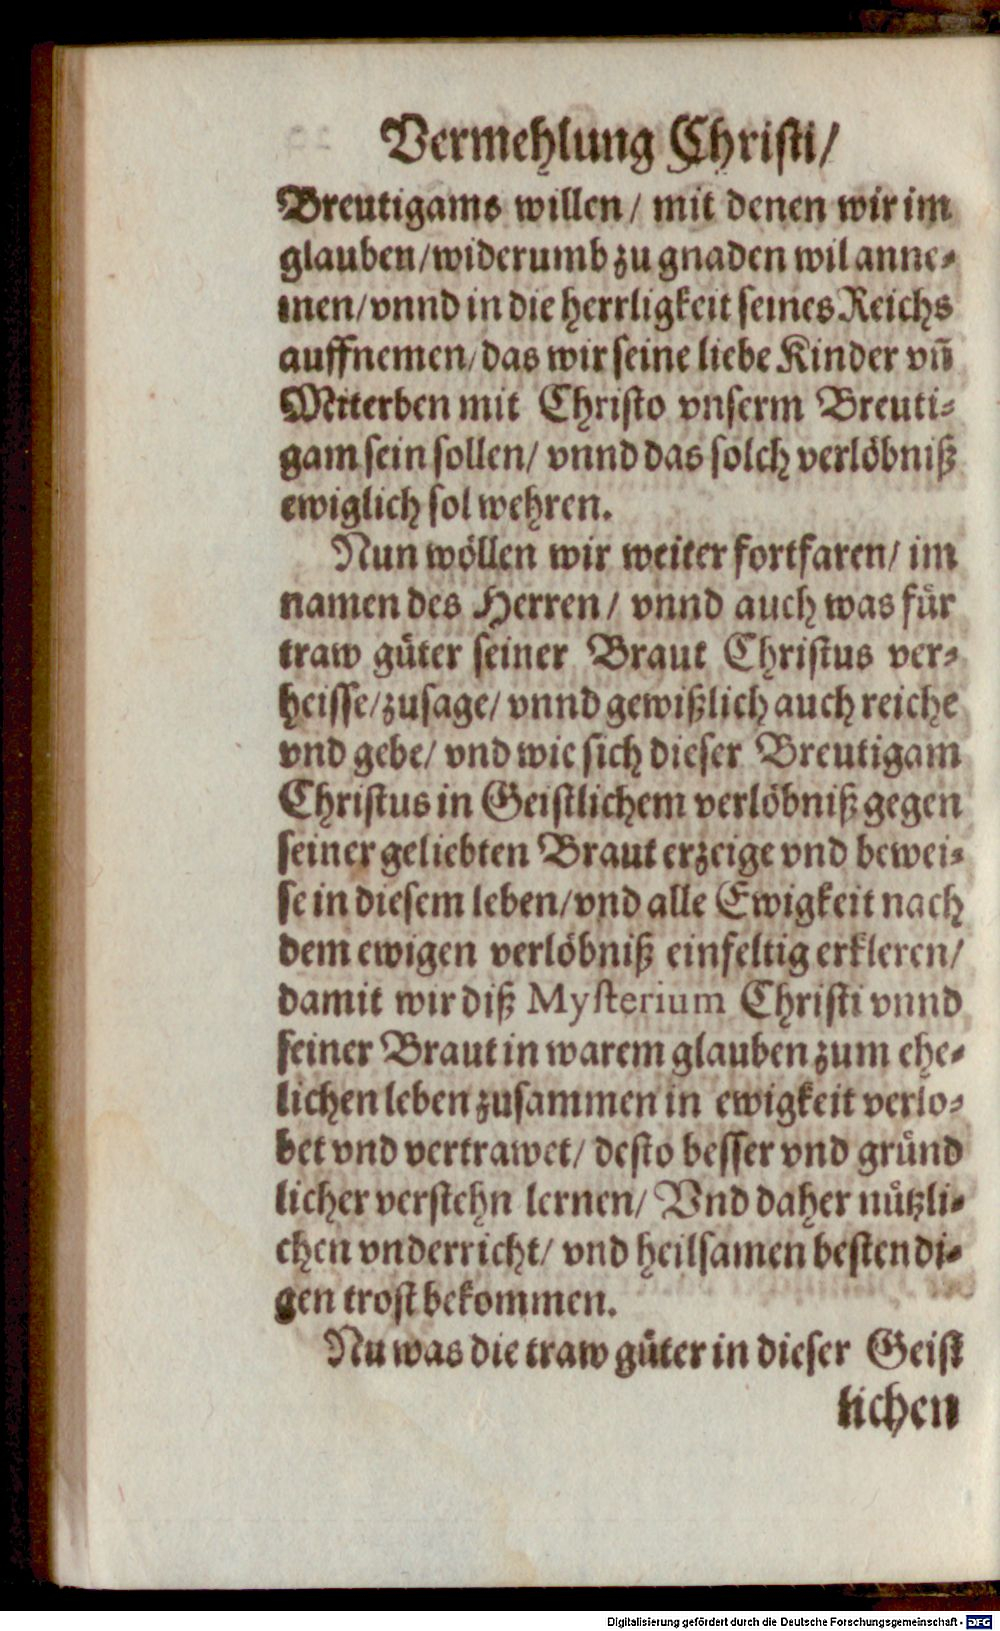 Vermehlung Christi/
Breutigams willen/ mit denen wir im
glauben/widerumb zu gnaden wil anne⸗
men/vnnd in die herrligkeit seines Reichs
auffnemen/das wir seine liebe Kinder vñ
Miterben mit Christo vnserm Breuti⸗
gam sein sollen/ vnnd das solch verlöbniß
ewiglich sol wehren.
Nun wöllen wir weiter fortfaren/ im
namen des Herren/ vnnd auch was für
traw güter seiner Braut Christus ver⸗
heisse/zusage/ vnnd gewißlich auch reiche
vnd gebe/ vnd wie sich dieser Breutigam
Christus in Geistlichem verlöbniß gegen
seiner geliebten Braut erzeige vnd bewei⸗
se in diesem leben/vnd alle Ewigkeit nach
dem ewigen verlöbniß einfeltig erkleren/
damit wir diß Mysterium Christi vnnd
seiner Braut in warem glauben zum ehe⸗
lichen leben zusammen in ewigkeit verlo⸗
bet vnd vertrawet/ desto besser vnd gründ
licher verstehn lernen/ Vnd daher nützli⸗
chen vnderricht/ vnd heilsamen bestendi⸗
gen trost bekommen.
Nu was die traw güter in dieser Geist
lichen
Digitalisierung gefördert durch die Deutsche Forschungsgemeinschaft - DFG